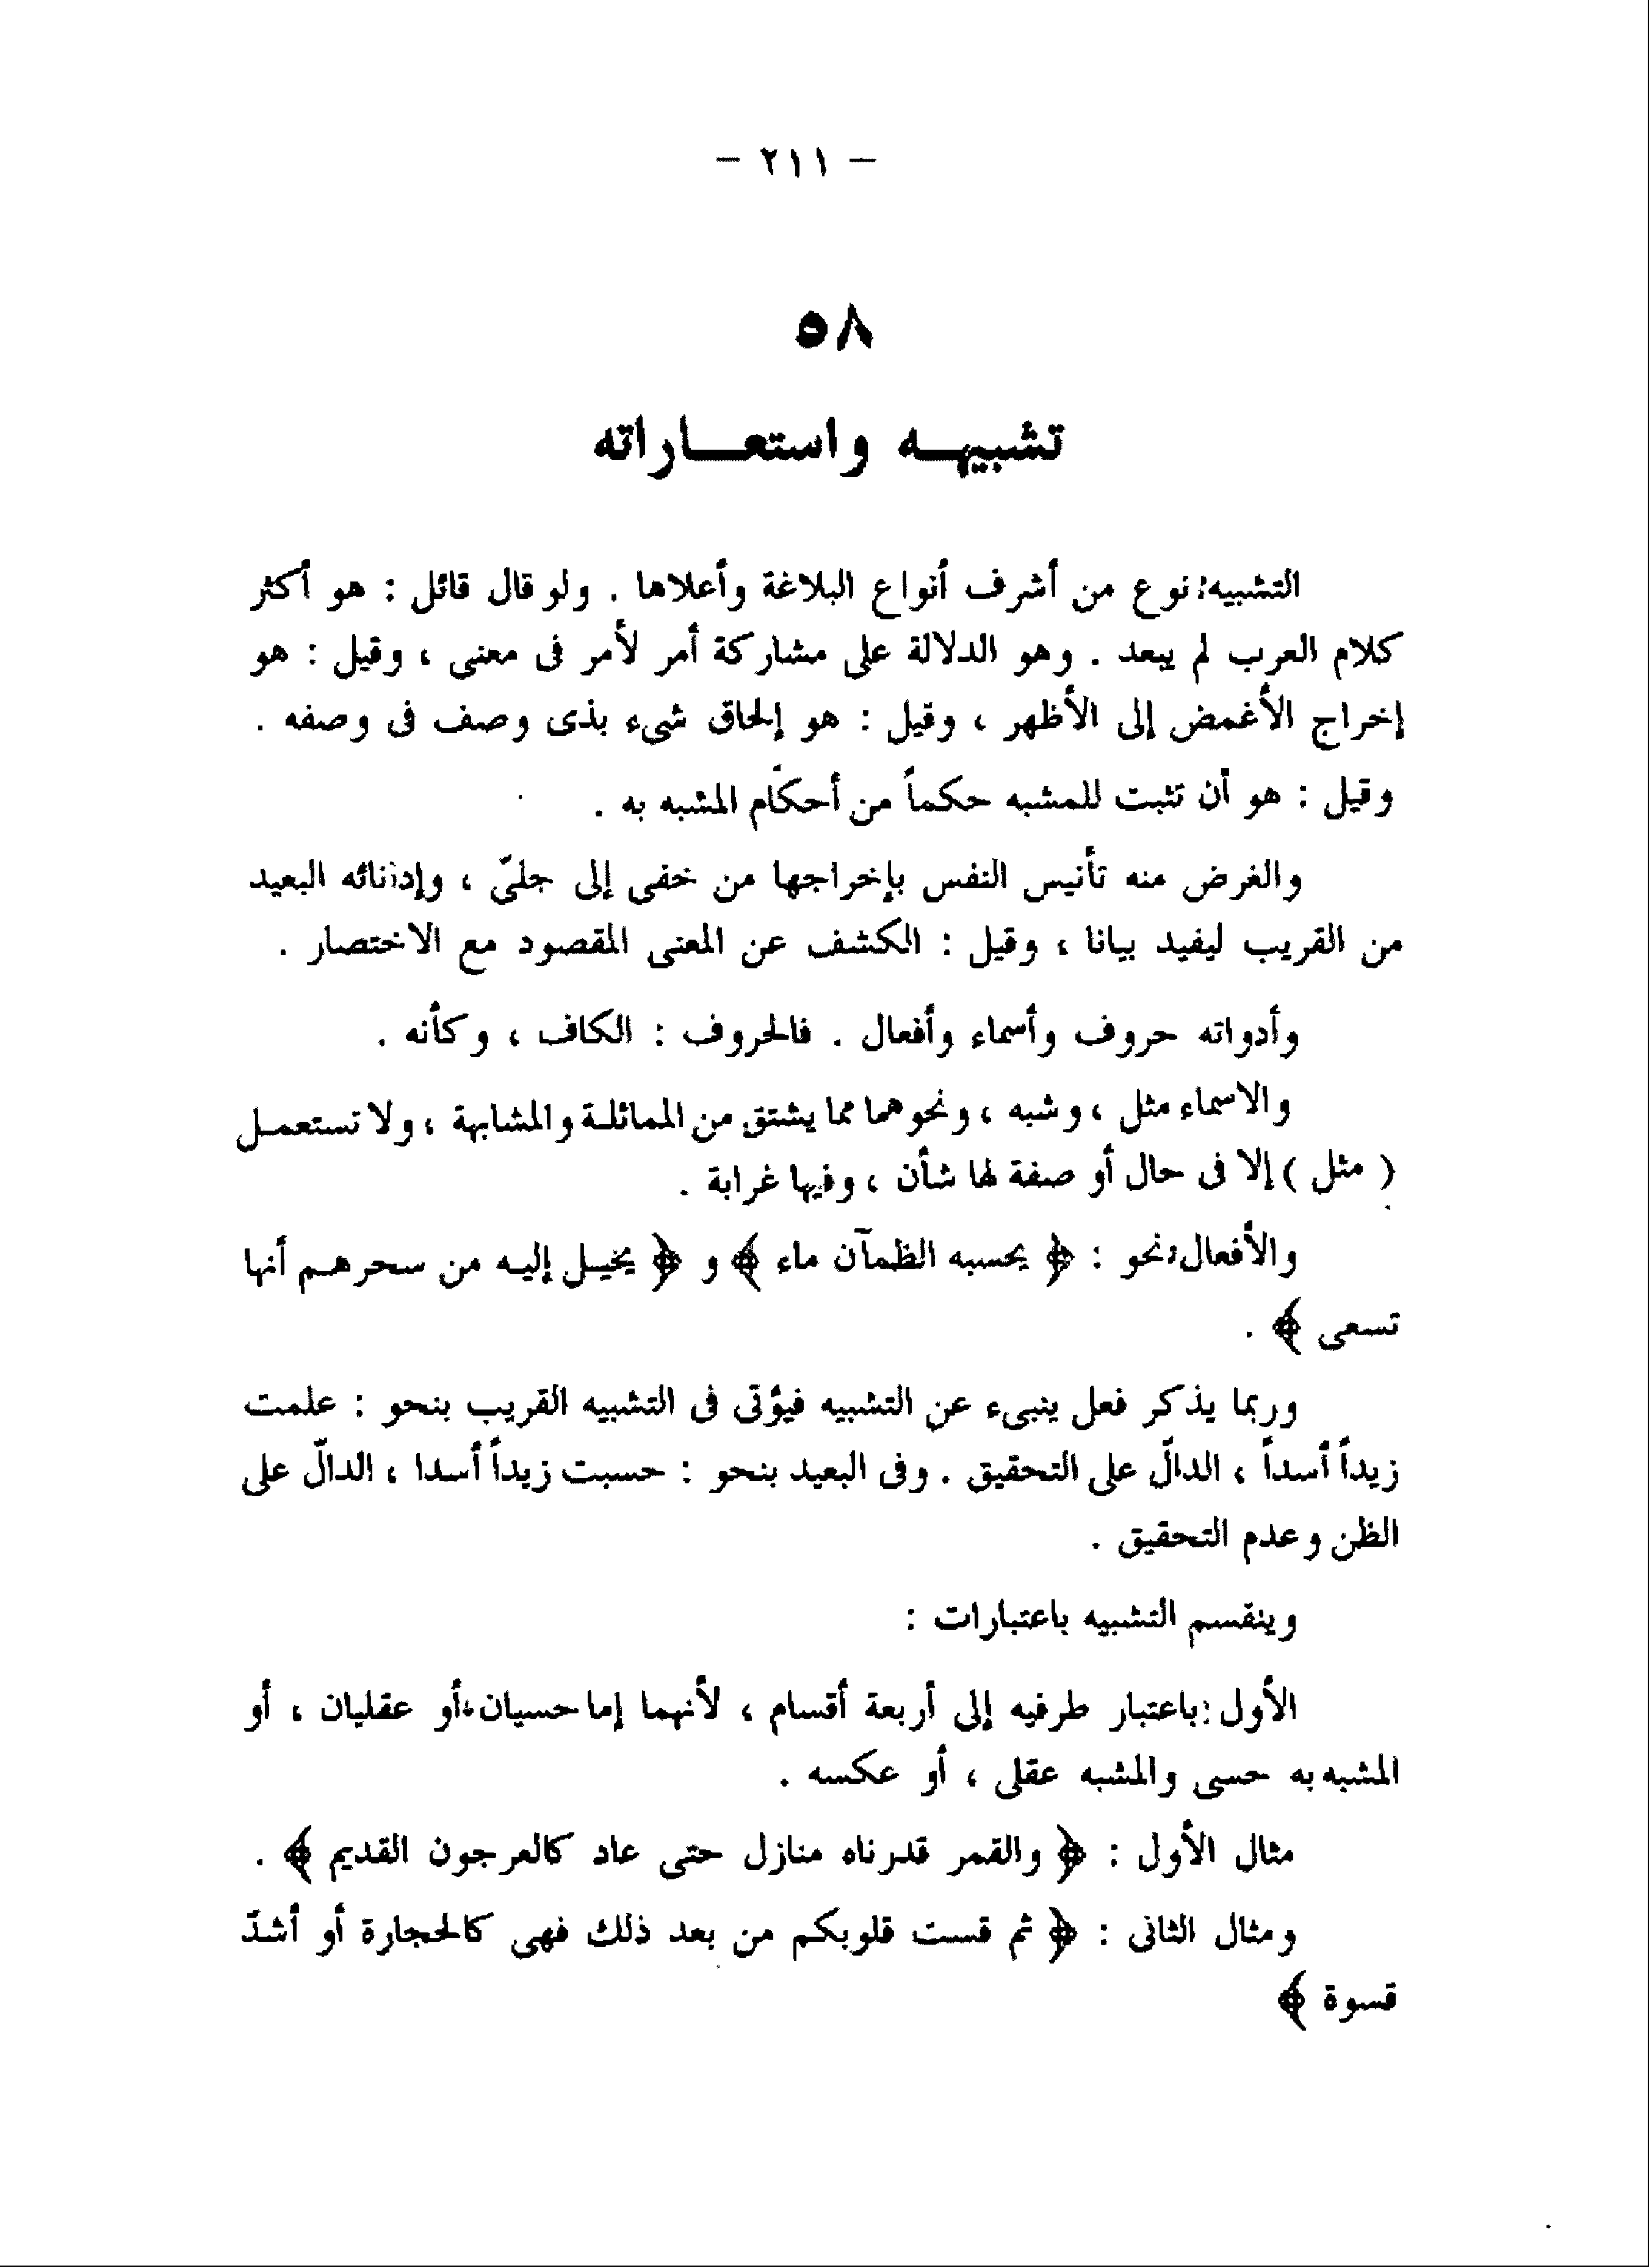 - ٢١١ -
٥٨
تشبيهه واستعاراته
التشبيه: نوع من أشرف أنواع البلاغة وأعلاها . ولو قال قائل : هو أكثر
كلام العرب لم يبعد . وهو الدلالة على مشاركة أمر لأمر فى معنى ، وقيل : هو
إخراج الأغمض إلى الأظهر ، وقيل : هو إلحاق شىء بذى وصف فى وصفه .
وقيل : هو أن تثبت للمشبه حكماً من أحكام المشبه به .
والغرض منه تأنيس النفس بإخراجها من خفى إلى جلىّ ، وإدنائه البعيد
من القريب ليفيد بيانا ، وقيل : الكشف عن المعنى المقصود مع الاختصار .
وأدواته حروف وأسماء وأفعال . فالحروف : الكاف ، وكأنه .
والاسماء مثل ، وشبه ، ونحوهما مما يشتق من المماثلة والمشابهة ، ولا تستعمل
( مثل ) إلا فى حال أو صفة لها شأن ، وفيها غرابة .
والأفعال: نحو : ﴿ يحسبه الظمآن ماء ﴾ و ﴿ يخيل إليه من سحرهم أنها
تسعى ﴾ .
وربما يذكر فعل ينبىء عن التشبيه فيؤتى فى التشبيه القريب بنحو : علمت
زيداً أسداً ، الدالّ على التحقيق . وفى البعيد بنحو : حسبت زيداً أسدا ، الدالّ على
الظن وعدم التحقيق .
وينقسم التشبيه باعتبارات :
الأول : باعتبار طرفيه إلى أربعة أقسام ، لأنهما إما حسيان، أو عقليان ، أو
المشبه به حسى والمشبه عقلى ، أو عكسه .
مثال الأول : ﴿ والقمر قدرناه منازل حتى عاد كالعرجون القديم ﴾ .
ومثال الثانى : ﴿ ثم قست قلوبكم من بعد ذلك فهى كالحجارة أو أشدّ
قسوة ﴾